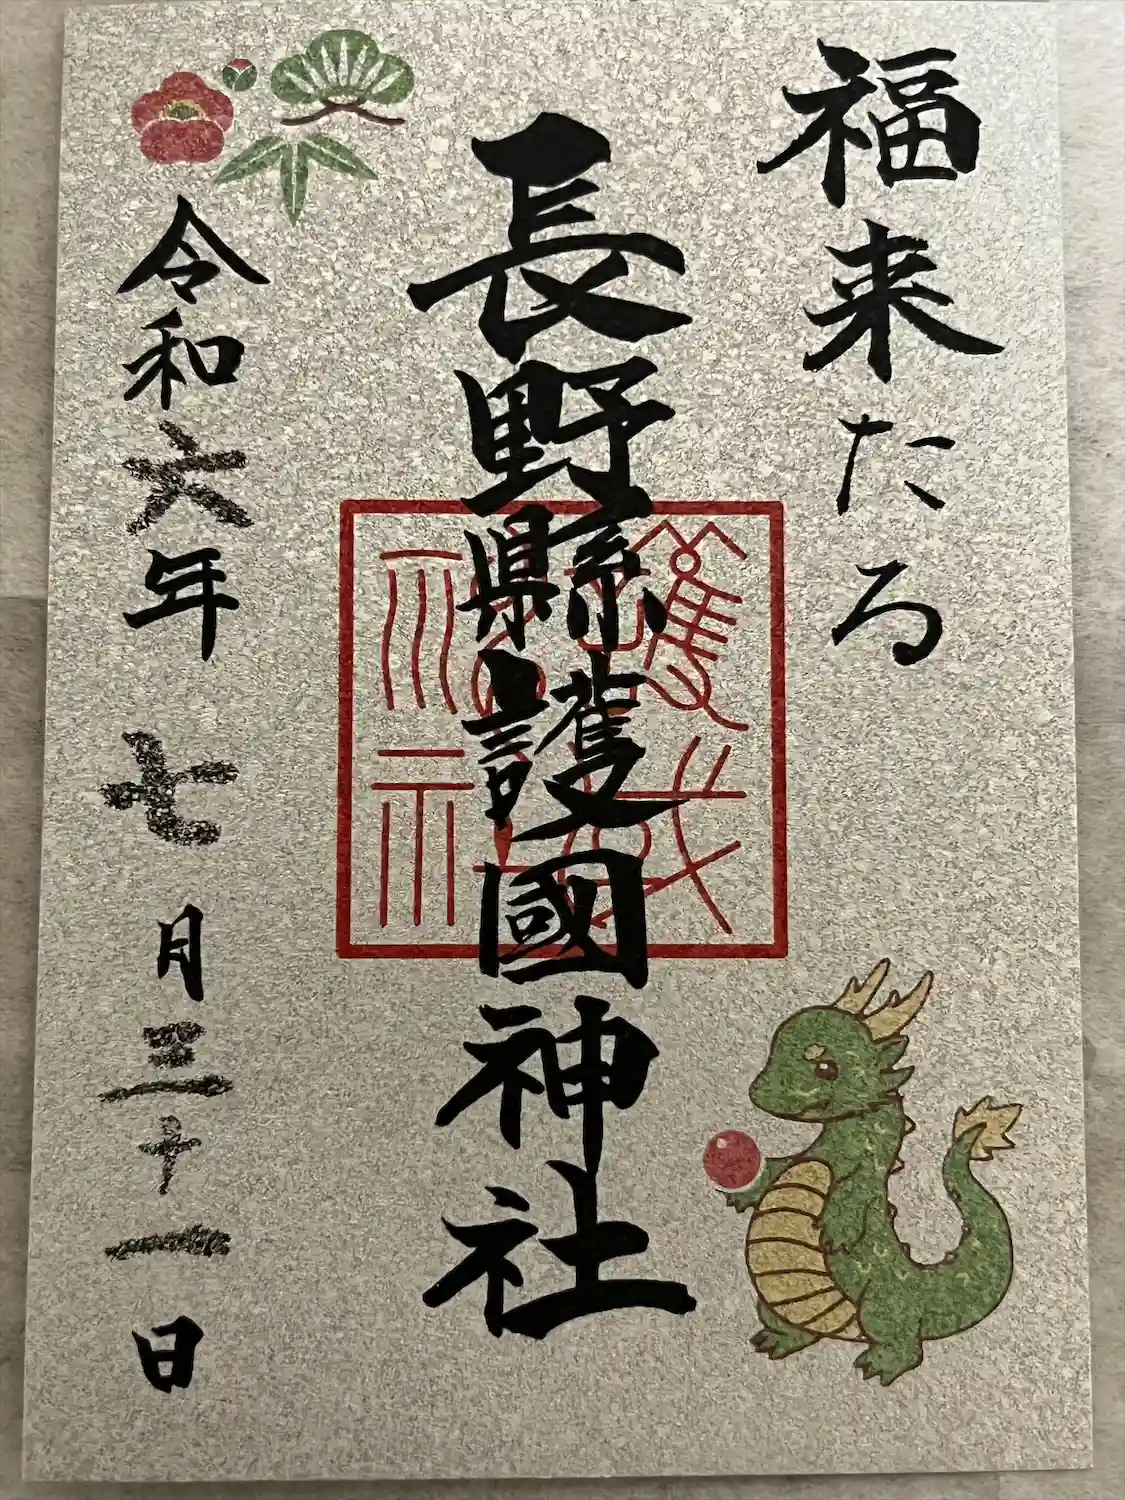 福来たる
長野縣護國神社
令和六年七月三十一日